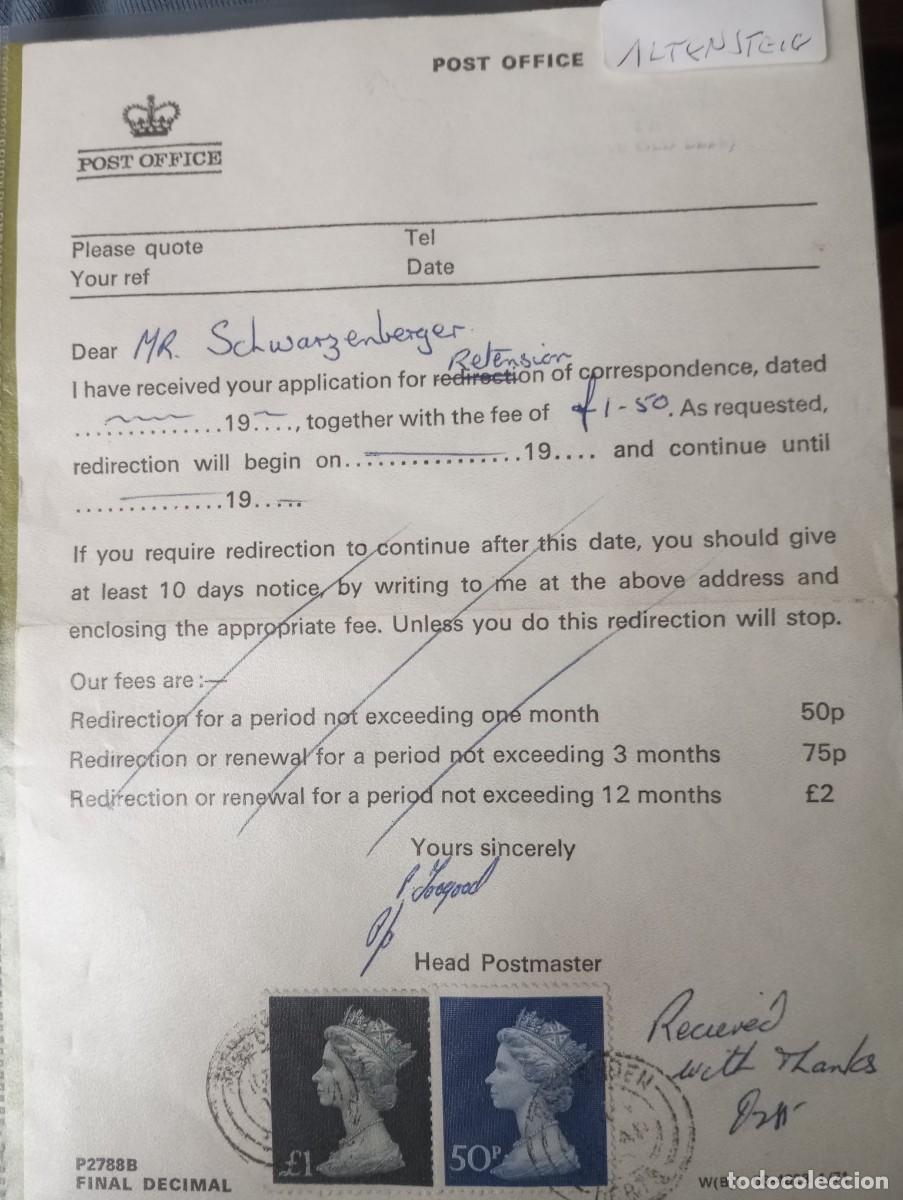 ALTENSTEIG
POST OFFICE
POST OFFICE
Please quote Tel
Your ref Date
Dear MR. Schwarzenberger
Retension
I have received your application for redirection of correspondence, dated
..............19...., together with the fee of £1-50. As requested,
redirection will begin on................19.... and continue until
..............19.....
If you require redirection to continue after this date, you should give
at least 10 days notice, by writing to me at the above address and
enclosing the appropriate fee. Unless you do this redirection will stop.
Our fees are:—
Redirection for a period not exceeding one month 50p
Redirection or renewal for a period not exceeding 3 months 75p
Redirection or renewal for a period not exceeding 12 months £2
Yours sincerely
P. Toogood
P/p
Head Postmaster
Recieved
with thanks
£1
50P
P2788B
FINAL DECIMAL
todocoleccion